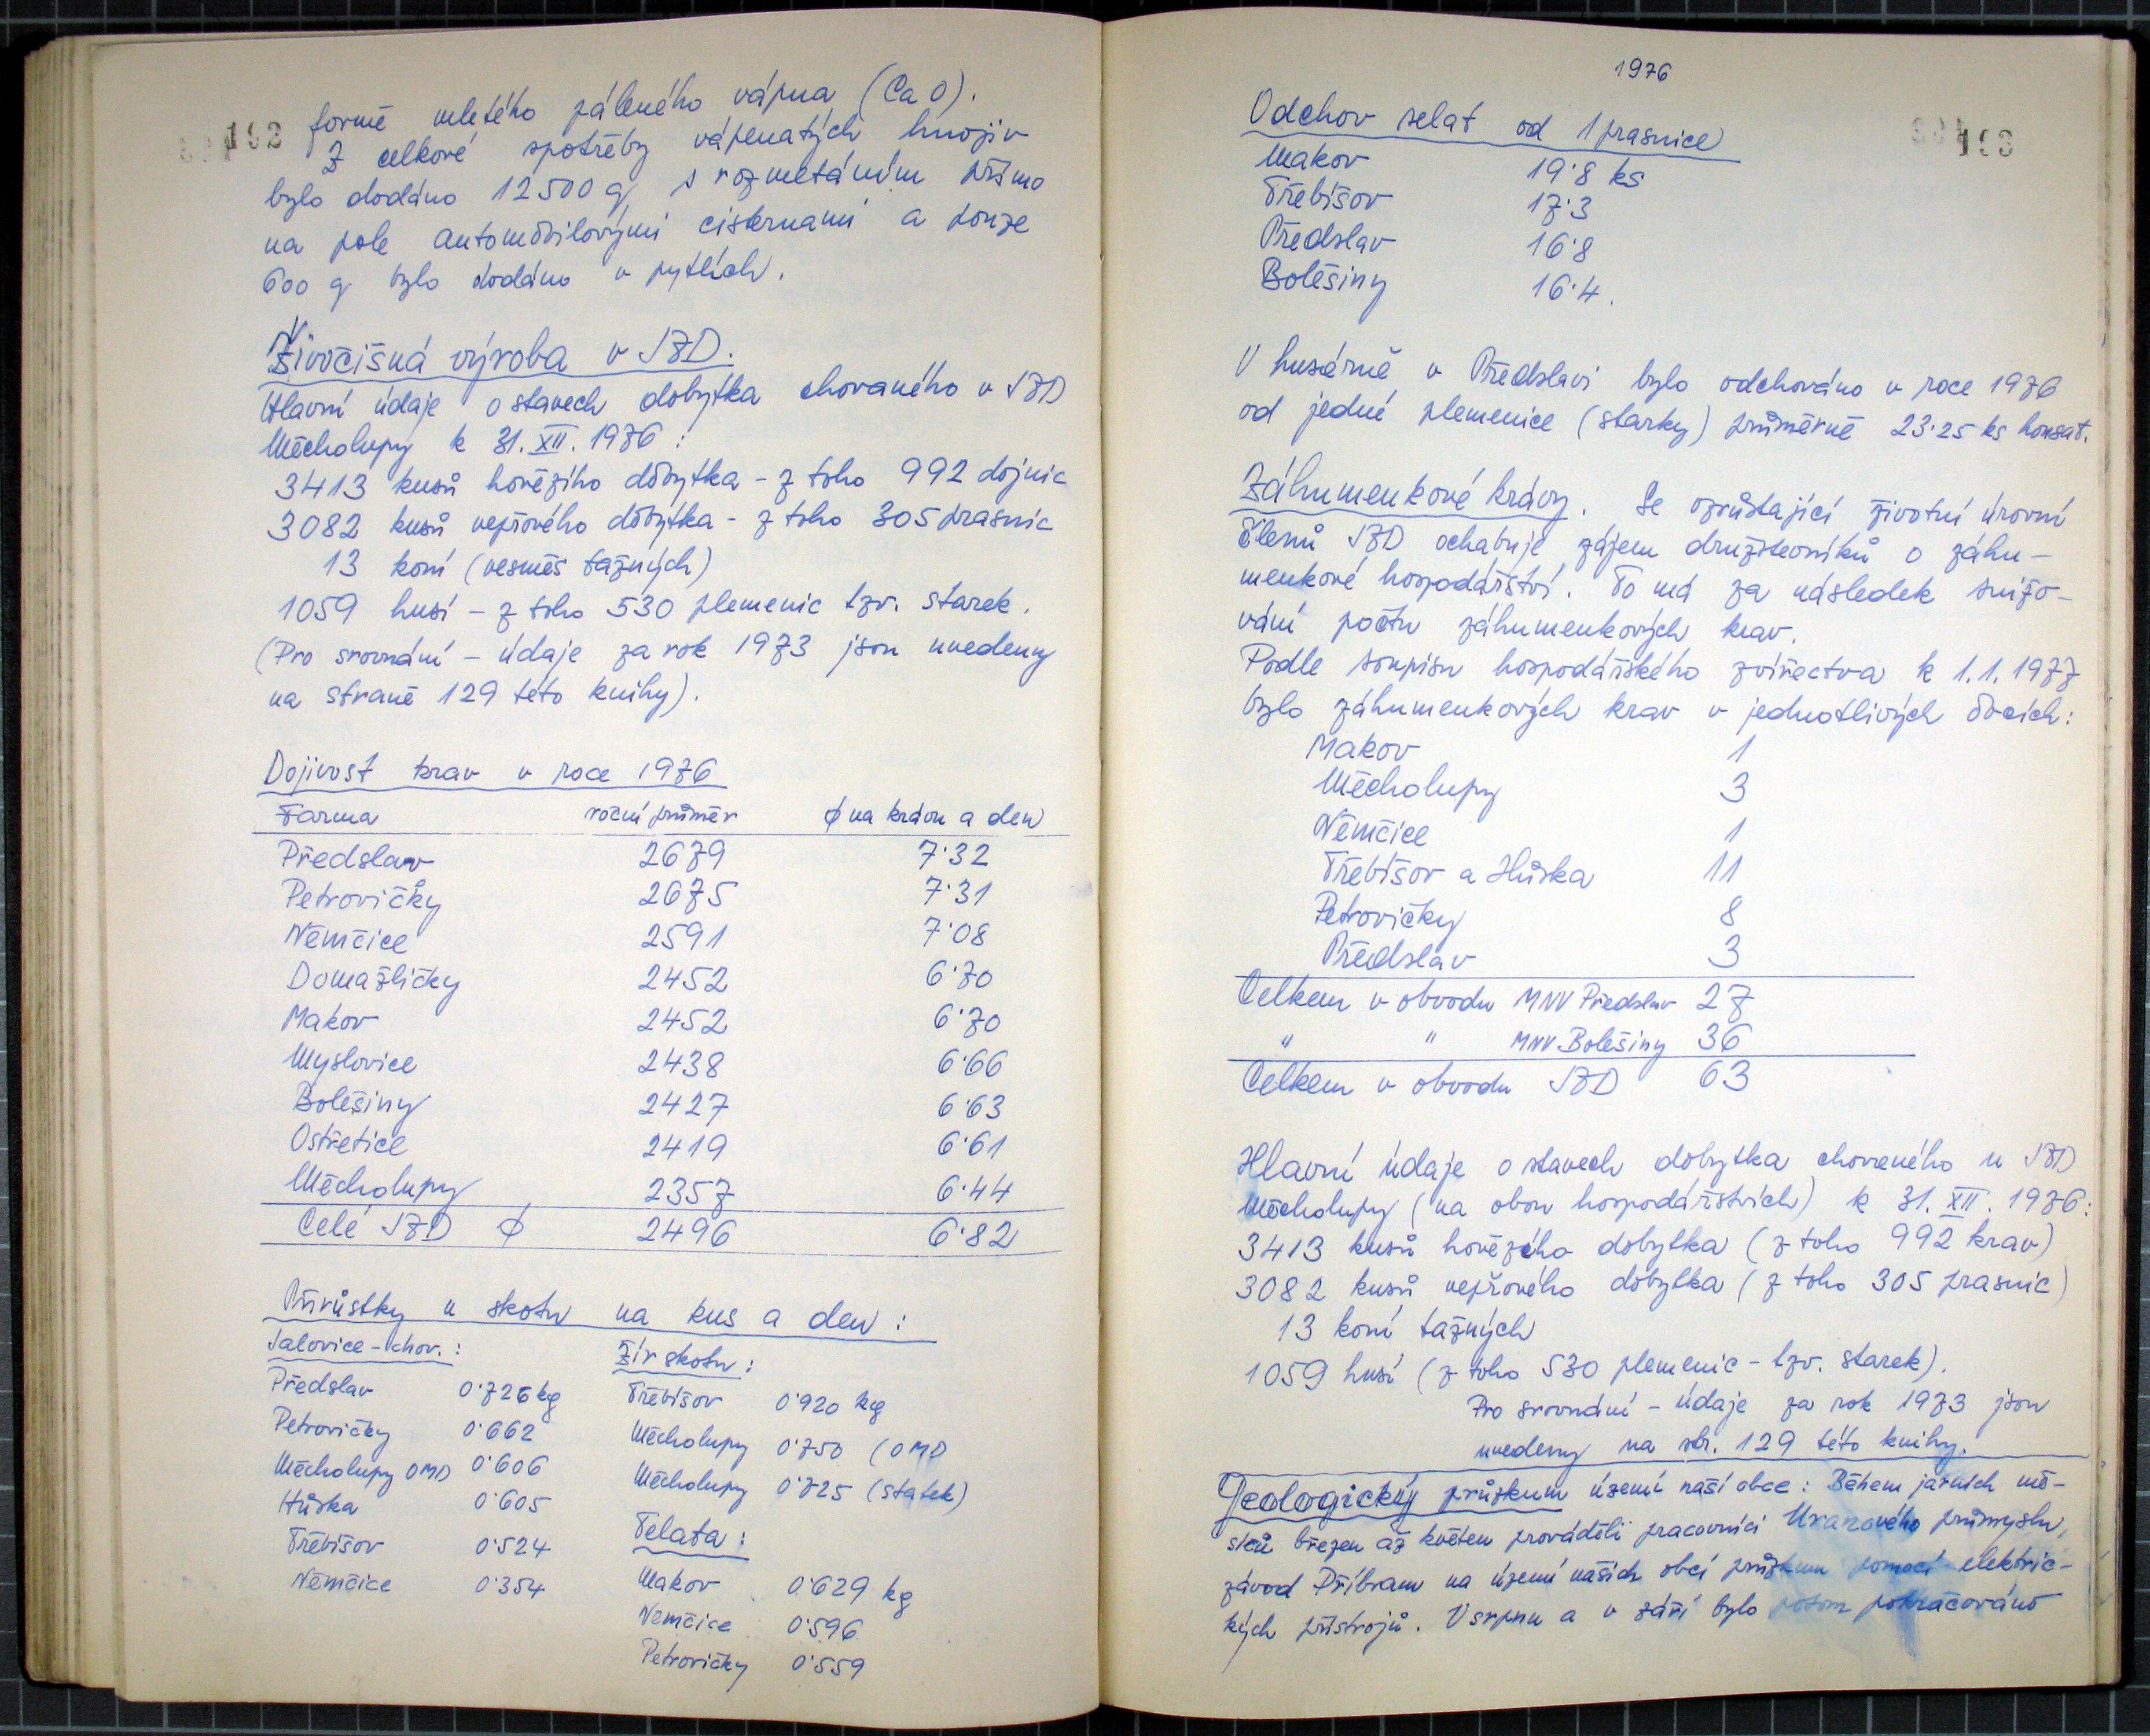 192
formě mletého páleného vápna (CaO).
Z celkové spotřeby vápenatých hnojiv
bylo dodáno 12500 q s rozmetáním přímo
na pole automobilovými cisternami a pouze
600 q bylo dodáno v pytlích.
Živočišná výroba v JZD.
Hlavní údaje o stavech dobytka chovaného v JZD
Měcholupy k 31. XII. 1976 :
3413 kusů hovězího dobytka - z toho 992 dojnic
3082 kusů vepřového dobytka - z toho 305 prasnic
13 koní (vesměs tažných)
1059 husí - z toho 530 plemenic tzv. starek.
(Pro srovnání - údaje za rok 1973 jsou uvedeny
na straně 129 této knihy).
Dojivost krav v roce 1976
Farma roční průměr ϕ na krávu a den
Předslav 2679 7·32
Petrovičky 2675 7·31
Němčice 2591 7·08
Domažličky 2452 6·70
Makov 2452 6·70
Myslovice 2438 6·66
Bolešiny 2427 6·63
Ostřetice 2419 6·61
Měcholupy 2357 6·44
Celé JZD ϕ 2496 6·82
Přírůstky u skotu na kus a den :
Jalovice - chov. :
Předslav 0·726 kg
Petrovičky 0·662
Měcholupy OMD 0·606
Hůrka 0·605
Třebíšov 0·524
Němčice 0·354
Žír skotu :
Třebíšov 0·920 kg
Měcholupy 0·750 (OMD
Měcholupy 0·725 (statek)
Telata :
Makov 0·629 kg
Němčice 0·596
Petrovičky 0·559
1976
193
Odchov selat od 1 prasnice
Makov 19·8 ks
Třebíšov 17·3
Předslav 16·8
Bolešiny 16·4.
V husárně v Předslavi bylo odchováno v roce 1976
od jedné plemenice (starky) průměrně 23·25 ks housat.
Záhumenkové krávy. Se vzrůstající životní úrovní
členů JZD ochabuje zájem družstevníků o záhu-
menkové hospodářství. To má za následek snižo-
vání počtu záhumenkových krav.
Podle soupisu hospodářského zvířectva k 1.1.1977
bylo záhumenkových krav v jednotlivých obcích:
Makov 1
Měcholupy 3
Němčice 1
Třebíšov a Hůrka 11
Petrovičky 8
Předslav 3
Celkem v obvodu MNV Předslav 27
" " MNV Bolešiny 36
Celkem v obvodu JZD 63
Hlavní údaje o stavech dobytka chovaného u JZD
Měcholupy (na obou hospodářstvích) k 31. XII. 1976:
3413 kusů hovězího dobytka (z toho 992 krav)
3082 kusů vepřového dobytka (z toho 305 prasnic)
13 koní tažných
1059 husí (z toho 530 plemenic - tzv. starek).
Pro srovnání - údaje za rok 1973 jsou
uvedeny na str. 129 této knihy.
Geologický průzkum území naší obce : Během jarních mě-
síců březen až květen prováděli pracovníci Uranového průmyslu,
závod Příbram na území našich obcí průzkum pomocí elektric-
kých přístrojů. V srpnu a v září bylo potom pokračováno